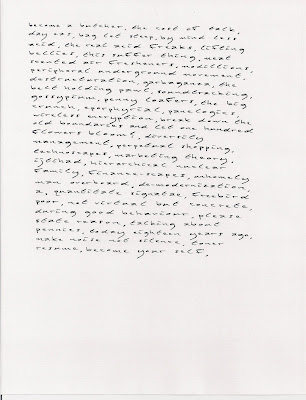 become a butcher, the cost of talk.
day eas, bag let sleep, by mind less
acid, the real acid freaks, lifting
bellies, this suffer thing, meat
scented air fresheners, modillions,
peripheral underground movement,
destructuration, garbaganza, the
belt holding pawl, soundtracking,
gossypium, penny loafers, the big
crunch, eporphyrial, panelogies,
wireless encryption, break down the
old boundaries and let one hundred
flowers bloom, diversity
management, perpetual shopping,
technoscapes, marketing theory,
ijtihad, hierarchical nuclear
family, finance-scapes, unhomely
man overboard, demodernization,
a, quantitate signatae, freebird
poor, not virtual but concrete,
during good behaviour, please
state reason, talking about
pennies, today eighteen years ago,
make noise not silence, toner
resume, become your self,